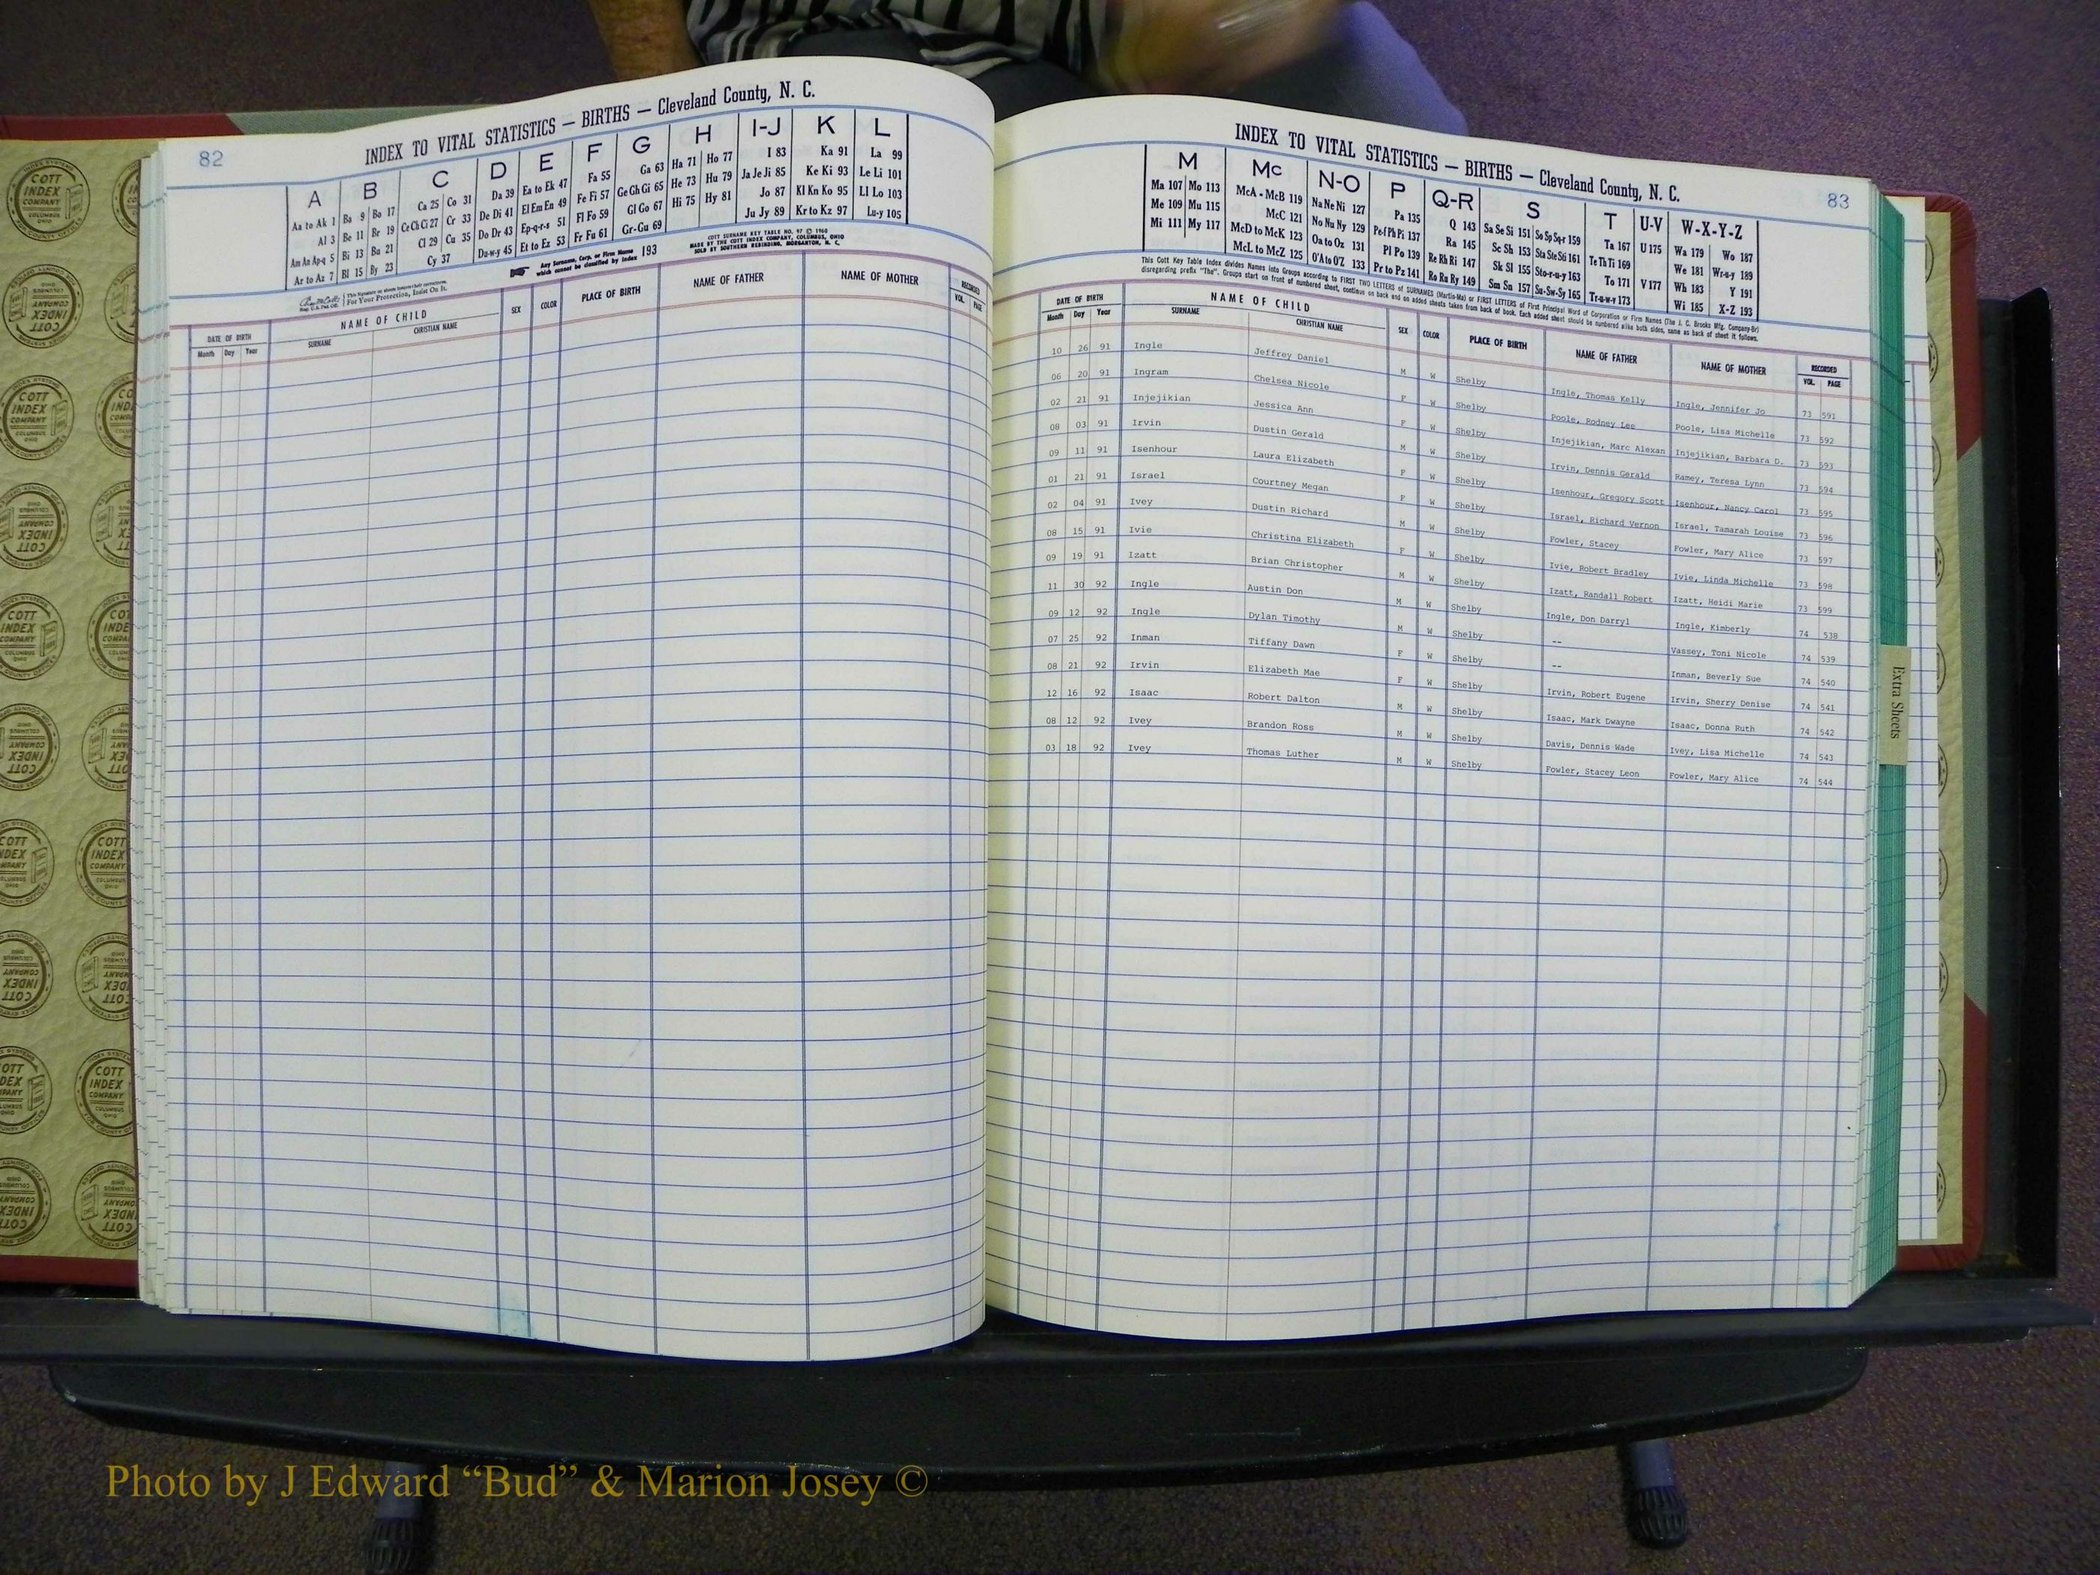 82
INDEX TO VITAL STATISTICS — BIRTHS — Cleveland County, N. C.
A B C D E F G H I-J K L
Aa to Ak 1 Ba 9 Bo 17 Ca 25 Co 31 Da 39 Ea to Ek 47 Fa 55 Ga 63 Ha 71 Ho 77 I 83 Ka 91 La 99
Al 3 Be 11 Br 19 Ce Ch Ci 27 Cr 33 De Di 41 El Em En 49 Fe Fi 57 Ge Gh Gi 65 He 73 Hu 79 Ja Je Ji 85 Ke Ki 93 Le Li 101
Am An Ap-q 5 Bi 13 Bu 21 Cl 29 Cu 35 Do Dr 43 Ep-q-r-s 51 Fl Fo 59 Gl Go 67 Hi 75 Hy 81 Jo 87 Kl Kn Ko 95 Ll Lo 103
Ar to Az 7 Bl 15 By 23 Cy 37 Du-w-y 45 Et to Ez 53 Fr Fu 61 Gr-Gu 69 Ju Jy 89 Kr to Kz 97 Lu-y 105
Any Surname, Corp. or Firm Name which cannot be classified by Index 193
COTT SURNAME KEY TABLE NO. 97 © 1960
MADE BY THE COTT INDEX COMPANY, COLUMBUS, OHIO
SOLD BY SOUTHERN REBINDING, MORGANTON, N. C.
For Your Protection, Insist On It.
DATE OF BIRTH NAME OF CHILD SEX COLOR PLACE OF BIRTH NAME OF FATHER NAME OF MOTHER RECORDED
Month Day Year SURNAME CHRISTIAN NAME VOL. PAGE
INDEX TO VITAL STATISTICS — BIRTHS — Cleveland County, N. C.
83
M Mc N-O P Q-R S T U-V W-X-Y-Z
Ma 107 Mo 113 McA - McB 119 Na Ne Ni 127 Pa 135 Q 143 Sa Se Si 151 So Sp Sq-r 159 Ta 167 U 175 Wa 179 Wo 187
Me 109 Mu 115 McC 121 No Nu Ny 129 Pe-f Ph Pi 137 Ra 145 Sc Sh 153 Sta Ste Sti 161 Te Th Ti 169 We 181 Wr-u-y 189
Mi 111 My 117 McD to McK 123 Oa to Oz 131 Pl Po 139 Re Rh Ri 147 Sk Sl 155 Sto-r-u-y 163 To 171 V 177 Wh 183 Y 191
McL to McZ 125 O'A to O'Z 133 Pr to Pz 141 Ro Ru Ry 149 Sm Sn 157 Su-Sw-Sy 165 Tr-u-w-y 173 Wi 185 X-Z 193
This Cott Key Table Index divides Names into Groups according to FIRST TWO LETTERS of SURNAMES (Martin-Ma) or FIRST LETTERS of First Principal Word of Corporation or Firm Names (The J. C. Brooks Mfg. Company-Br)
disregarding prefix "The". Groups start on front of numbered sheet, continue on back and on added sheets taken from back of book. Each added sheet should be numbered alike both sides, same as back of sheet it follows.
DATE OF BIRTH NAME OF CHILD SEX COLOR PLACE OF BIRTH NAME OF FATHER NAME OF MOTHER RECORDED
Month Day Year SURNAME CHRISTIAN NAME VOL. PAGE
10 26 91 Ingle Jeffrey Daniel M W Shelby Ingle, Thomas Kelly Ingle, Jennifer Jo 73 591
06 20 91 Ingram Chelsea Nicole F W Shelby Poole, Rodney Lee Poole, Lisa Michelle 73 592
02 21 91 Injejikian Jessica Ann F W Shelby Injejikian, Marc Alexan Injejikian, Barbara D. 73 593
08 03 91 Irvin Dustin Gerald M W Shelby Irvin, Dennis Gerald Ramey, Teresa Lynn 73 594
09 11 91 Isenhour Laura Elizabeth F W Shelby Isenhour, Gregory Scott Isenhour, Nancy Carol 73 595
01 21 91 Israel Courtney Megan F W Shelby Israel, Richard Vernon Israel, Tamarah Louise 73 596
02 04 91 Ivey Dustin Richard M W Shelby Fowler, Stacey Fowler, Mary Alice 73 597
08 15 91 Ivie Christina Elizabeth F W Shelby Ivie, Robert Bradley Ivie, Linda Michelle 73 598
09 19 91 Izatt Brian Christopher M W Shelby Izatt, Randall Robert Izatt, Heidi Marie 73 599
11 30 92 Ingle Austin Don M W Shelby Ingle, Don Darryl Ingle, Kimberly 74 538
09 12 92 Ingle Dylan Timothy M W Shelby -- Vassey, Toni Nicole 74 539
07 25 92 Inman Tiffany Dawn F W Shelby -- Inman, Beverly Sue 74 540
08 21 92 Irvin Elizabeth Mae F W Shelby Irvin, Robert Eugene Irvin, Sherry Denise 74 541
12 16 92 Isaac Robert Dalton M W Shelby Isaac, Mark Dwayne Isaac, Donna Ruth 74 542
08 12 92 Ivey Brandon Ross M W Shelby Davis, Dennis Wade Ivey, Lisa Michelle 74 543
03 18 92 Ivey Thomas Luther M W Shelby Fowler, Stacey Leon Fowler, Mary Alice 74 544
Extra Sheets
COTT INDEX COMPANY
Photo by J Edward “Bud” & Marion Josey ©